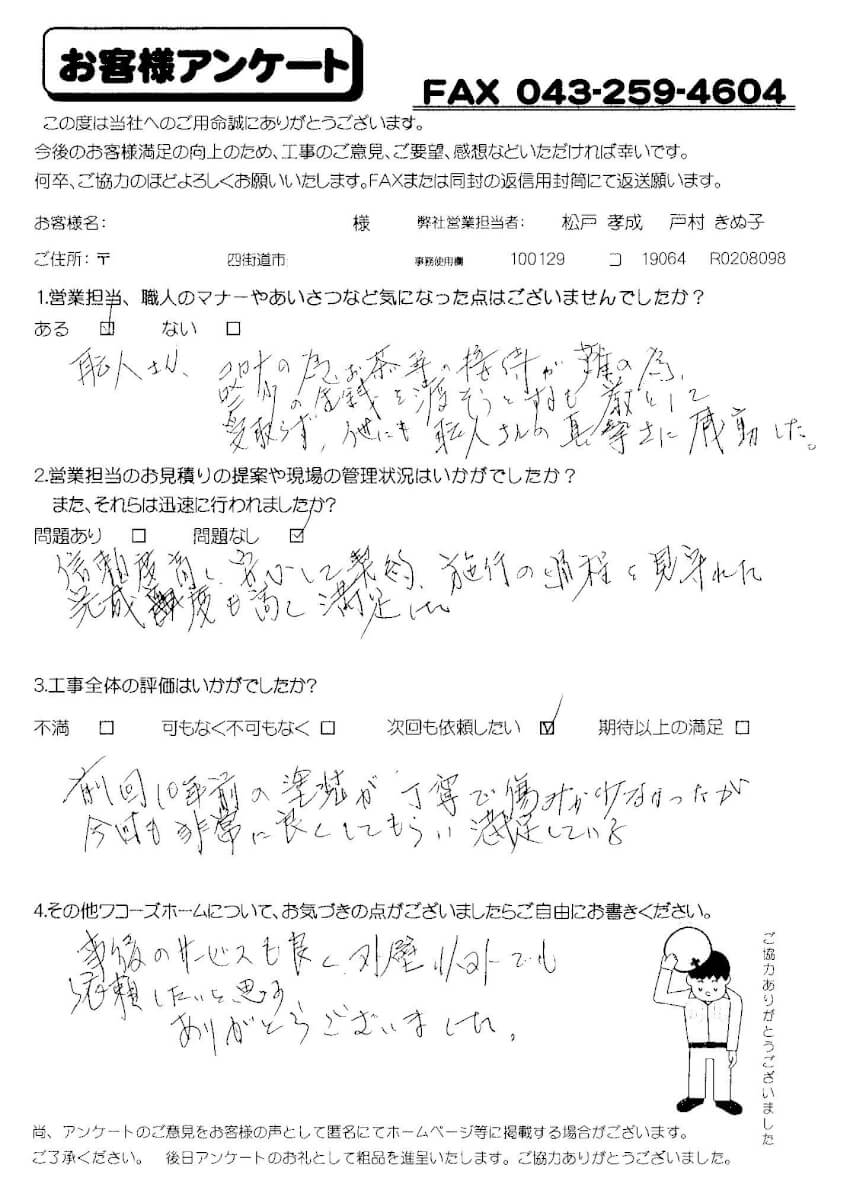 お客様アンケート
FAX 043-259-4604
この度は当社へのご用命誠にありがとうございます。
今後のお客様満足の向上のため、工事のご意見、ご要望、感想などいただければ幸いです。
何卒、ご協力のほどよろしくお願いいたします。FAXまたは同封の返信用封筒にて返送願います。
お客様名: 様 弊社営業担当者: 松戸 孝成 戸村 きぬ子
ご住所: 〒 四街道市 事務使用欄 100129 コ 19064 R0208098
1.営業担当、職人のマナーやあいさつなど気になった点はございませんでしたか?
ある ☑ ない □
職人さんが、コロナの為お茶等の接待が難の為、
の金銭を渡そうとするも厳として
受取らず、他にも職人さんの真摯さに感動した。
2.営業担当のお見積りの提案や現場の管理状況はいかがでしたか?
また、それらは迅速に行われましたか?
問題あり □ 問題なし ☑
信頼度高く、安心して契約、施行の過程を見守れた
完成度も高く満足した
3.工事全体の評価はいかがでしたか?
不満 □ 可もなく不可もなく □ 次回も依頼したい ☑ 期待以上の満足 □
前回10年前の塗装が丁寧で傷みが少なかったが
今回も非常に良くしてもらい満足している
4.その他ワコーズホームについて、お気づきの点がございましたらご自由にお書きください。
事後のサービスも良く、外壁リストでも
依頼したいと思う、
ありがとうございました。
ご協力ありがとうございました
尚、アンケートのご意見をお客様の声として匿名にてホームページ等に掲載する場合がございます。
ご了承ください。 後日アンケートのお礼として粗品を進呈いたします。ご協力ありがとうございました。